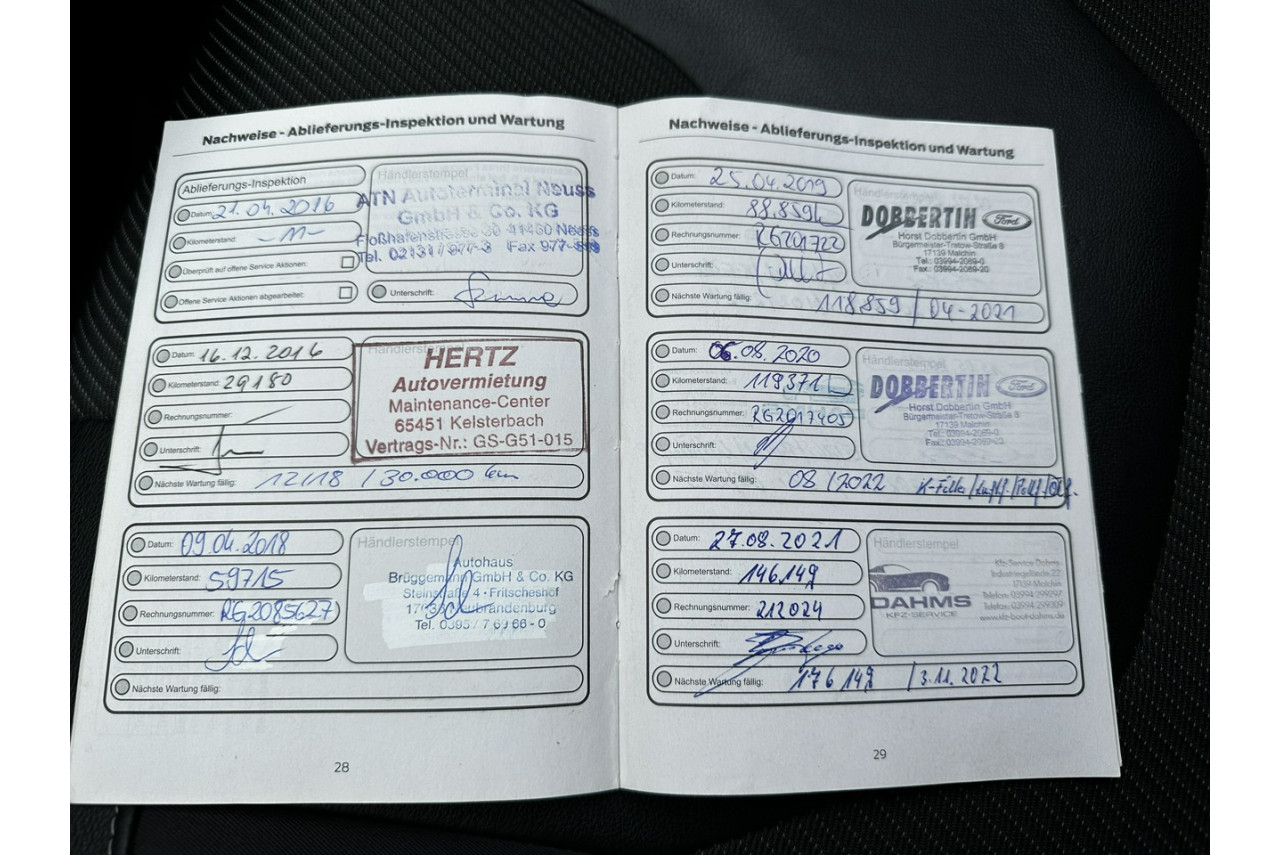 Nachweise - Ablieferungs-Inspektion und Wartung
Ablieferungs-Inspektion
Datum: 21.04.2016
Kilometerstand: -11-
Überprüft auf offene Service Aktionen:
Offene Service Aktionen abgearbeitet:
Händlerstempel
ATN Autoterminal Neuss
GmbH & Co. KG
Floßhafenstraße 30 41460 Neuss
Tel. 02131 / 977-3 Fax 977-
Unterschrift:
Datum: 16.12.2016
Kilometerstand: 29180
Rechnungsnummer:
Unterschrift:
Händlerstempel
HERTZ
Autovermietung
Maintenance-Center
65451 Kelsterbach
Vertrags-Nr.: GS-G51-015
Nächste Wartung fällig: 12/18 / 30.000 km
Datum: 09.04.2018
Kilometerstand: 59715
Rechnungsnummer: RG2085627
Unterschrift:
Händlerstempel
Autohaus
Brüggemann GmbH & Co. KG
Steinstraße 4 · Fritscheshof
17036 Neubrandenburg
Tel. 0395 / 7 69 66 - 0
Nächste Wartung fällig:
28
Nachweise - Ablieferungs-Inspektion und Wartung
Datum: 25.04.2019
Kilometerstand: 88.859
Rechnungsnummer: RG201722
Unterschrift:
Händlerstempel
DOBBERTIN Ford
Horst Dobbertin GmbH
Bürgermeister-Tretow-Straße 8
17139 Malchin
Tel.: 03994-2069-0
Fax.: 03994-2069-20
Nächste Wartung fällig: 118.859 / 04-2021
Datum: 06.08.2020
Kilometerstand: 119371
Rechnungsnummer: RG2017405
Unterschrift:
Händlerstempel
DOBBERTIN Ford
Horst Dobbertin GmbH
Bürgermeister-Tretow-Straße 8
17139 Malchin
Tel.: 03994-2069-0
Fax.: 03994-2069-20
Nächste Wartung fällig: 08/2022 K-Filter/Luftf./Pollf/Ölf.
Datum: 27.08.2021
Kilometerstand: 146.149
Rechnungsnummer: 212024
Unterschrift:
Händlerstempel
DAHMS
KFZ-SERVICE
Kfz-Service Dahms
Industriegelände 22
17139 Malchin
Telefon: 03994 299297
Telefax: 03994 299009
www.kfz-boot-dahms.de
Nächste Wartung fällig: 176149 / 3.11.2022
29